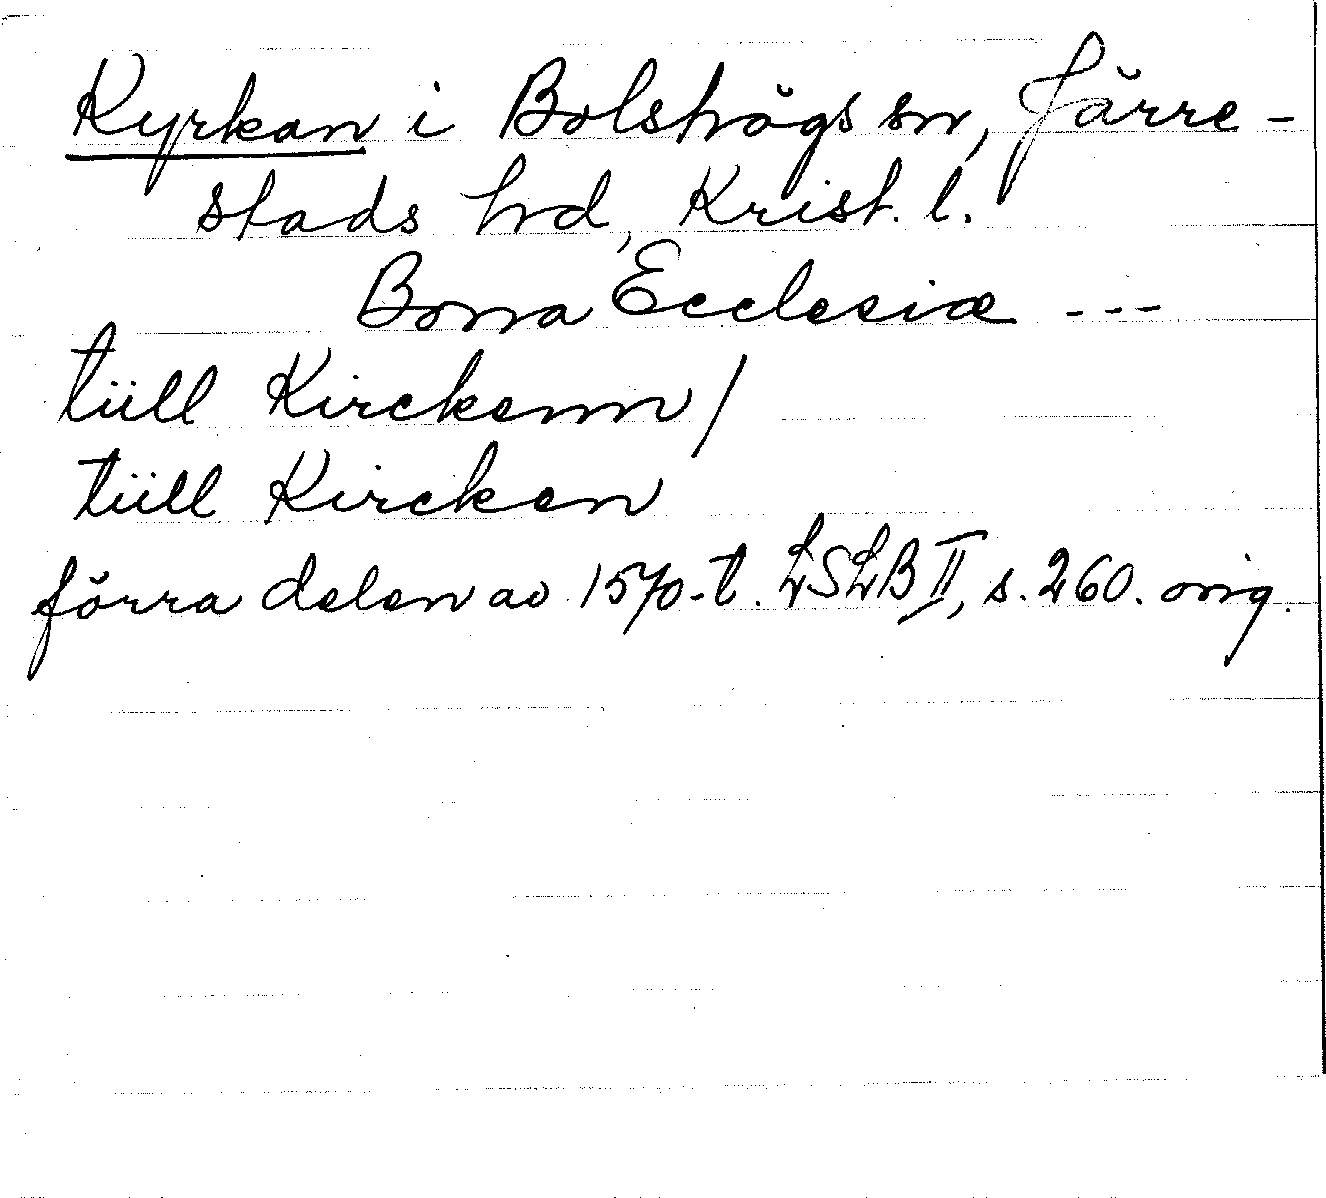 Kyrkan i Bolshögs sn, Järre-
stads hd, Krist. l.
Bona Ecclesiæ ---
tüll Kirckenn/
tüll Kircken
förra delen av 1570-t. LSLB II, s. 260. orig.